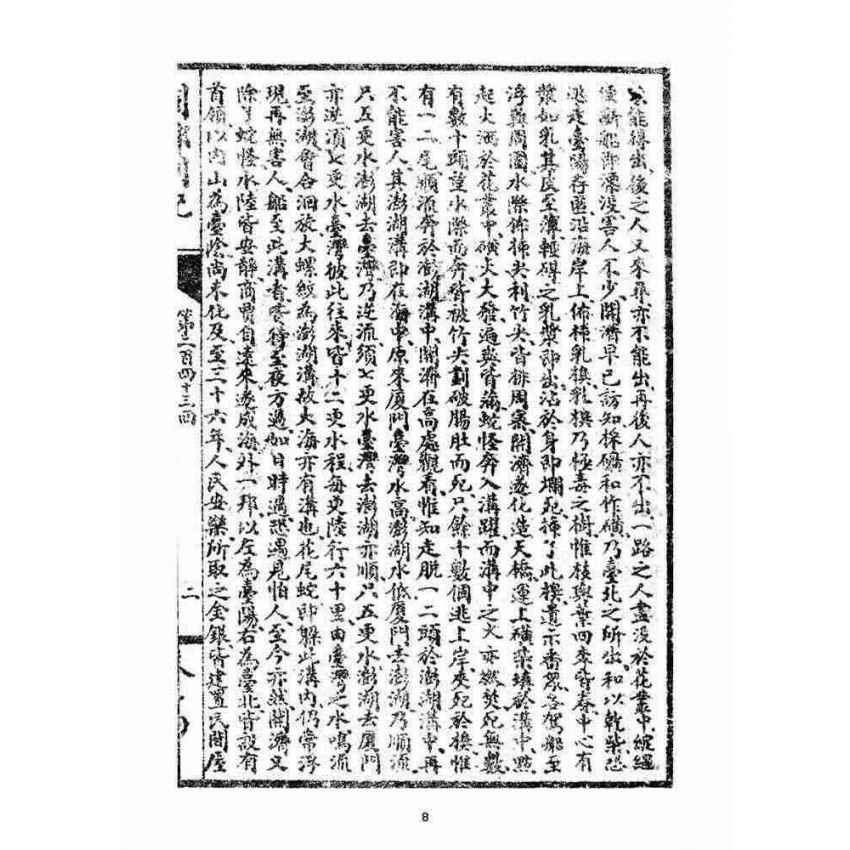 能得出後之人又來尋亦不能出再後人亦不出一路之人盡沒於花叢中縱遇
便新船即漂沒害人不少開濟早已訪知採礦和作礦乃臺北之所出和以乾柴恐
逃走臺陽存匿沿海岸上佈插乳樸乳樸乃極毒之樹惟枝與葉四季皆春中心有
漿如乳其皮至薄輕碍之乳漿即出沾於身即爛死插了此樸遺示番眾各駕船至
浮與周圍水際佈插尖利竹尖皆俳周寨開濟遂化造天橋運上磺柴填於溝中點
起火酒於花叢中磺火大發遍與皆滿蛇怪奔入溝躍而溝中之火亦燃焚死無數
有數十頭望水際而奔皆被竹尖割破腸肚而死只餘十數個逃上岸來死於樸惟
有一二尾順流奔於澎湖溝中開濟在高處觀看惟知走脫一二頭於澎湖溝中再
不能害人其澎湖溝即在海中原來廈門臺灣水高澎湖水低廈門去澎湖乃順流
只五更水澎湖去臺灣乃逆流須七更水臺灣去澎湖亦順只五更水澎湖去廈門
亦逆須七更水臺灣彼此往來皆十二更水程每更陸行六十里由臺灣之水鳴流
至澎湖會合洄放大螺紋為澎湖溝故大海亦有溝也花尾蛇即躲此溝內仍常浮
現再無害人船至此溝者要待至夜方過如日時過恐遇見怕人至今亦然開濟又
除了蛇怪水陸皆安靜商賈自遠來遂成海外一邦以左為臺陽右為臺北皆設有
首領以內山為臺陰尚未化及至三十六年人民安樂所取之金銀皆建置民間屋
第二百四十三回
二